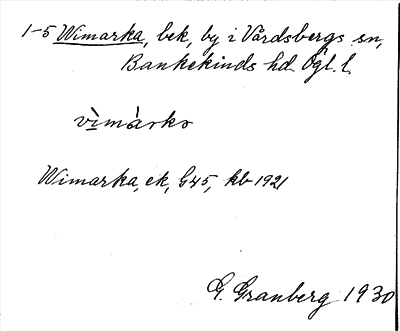 1-5 Wimarka, bek, by i Vårdsbergs sn,
Bankekinds hd. Ögl. l.
vìmàrka
Wimarka, ek, G45, kb 1921
G. Granberg 1930